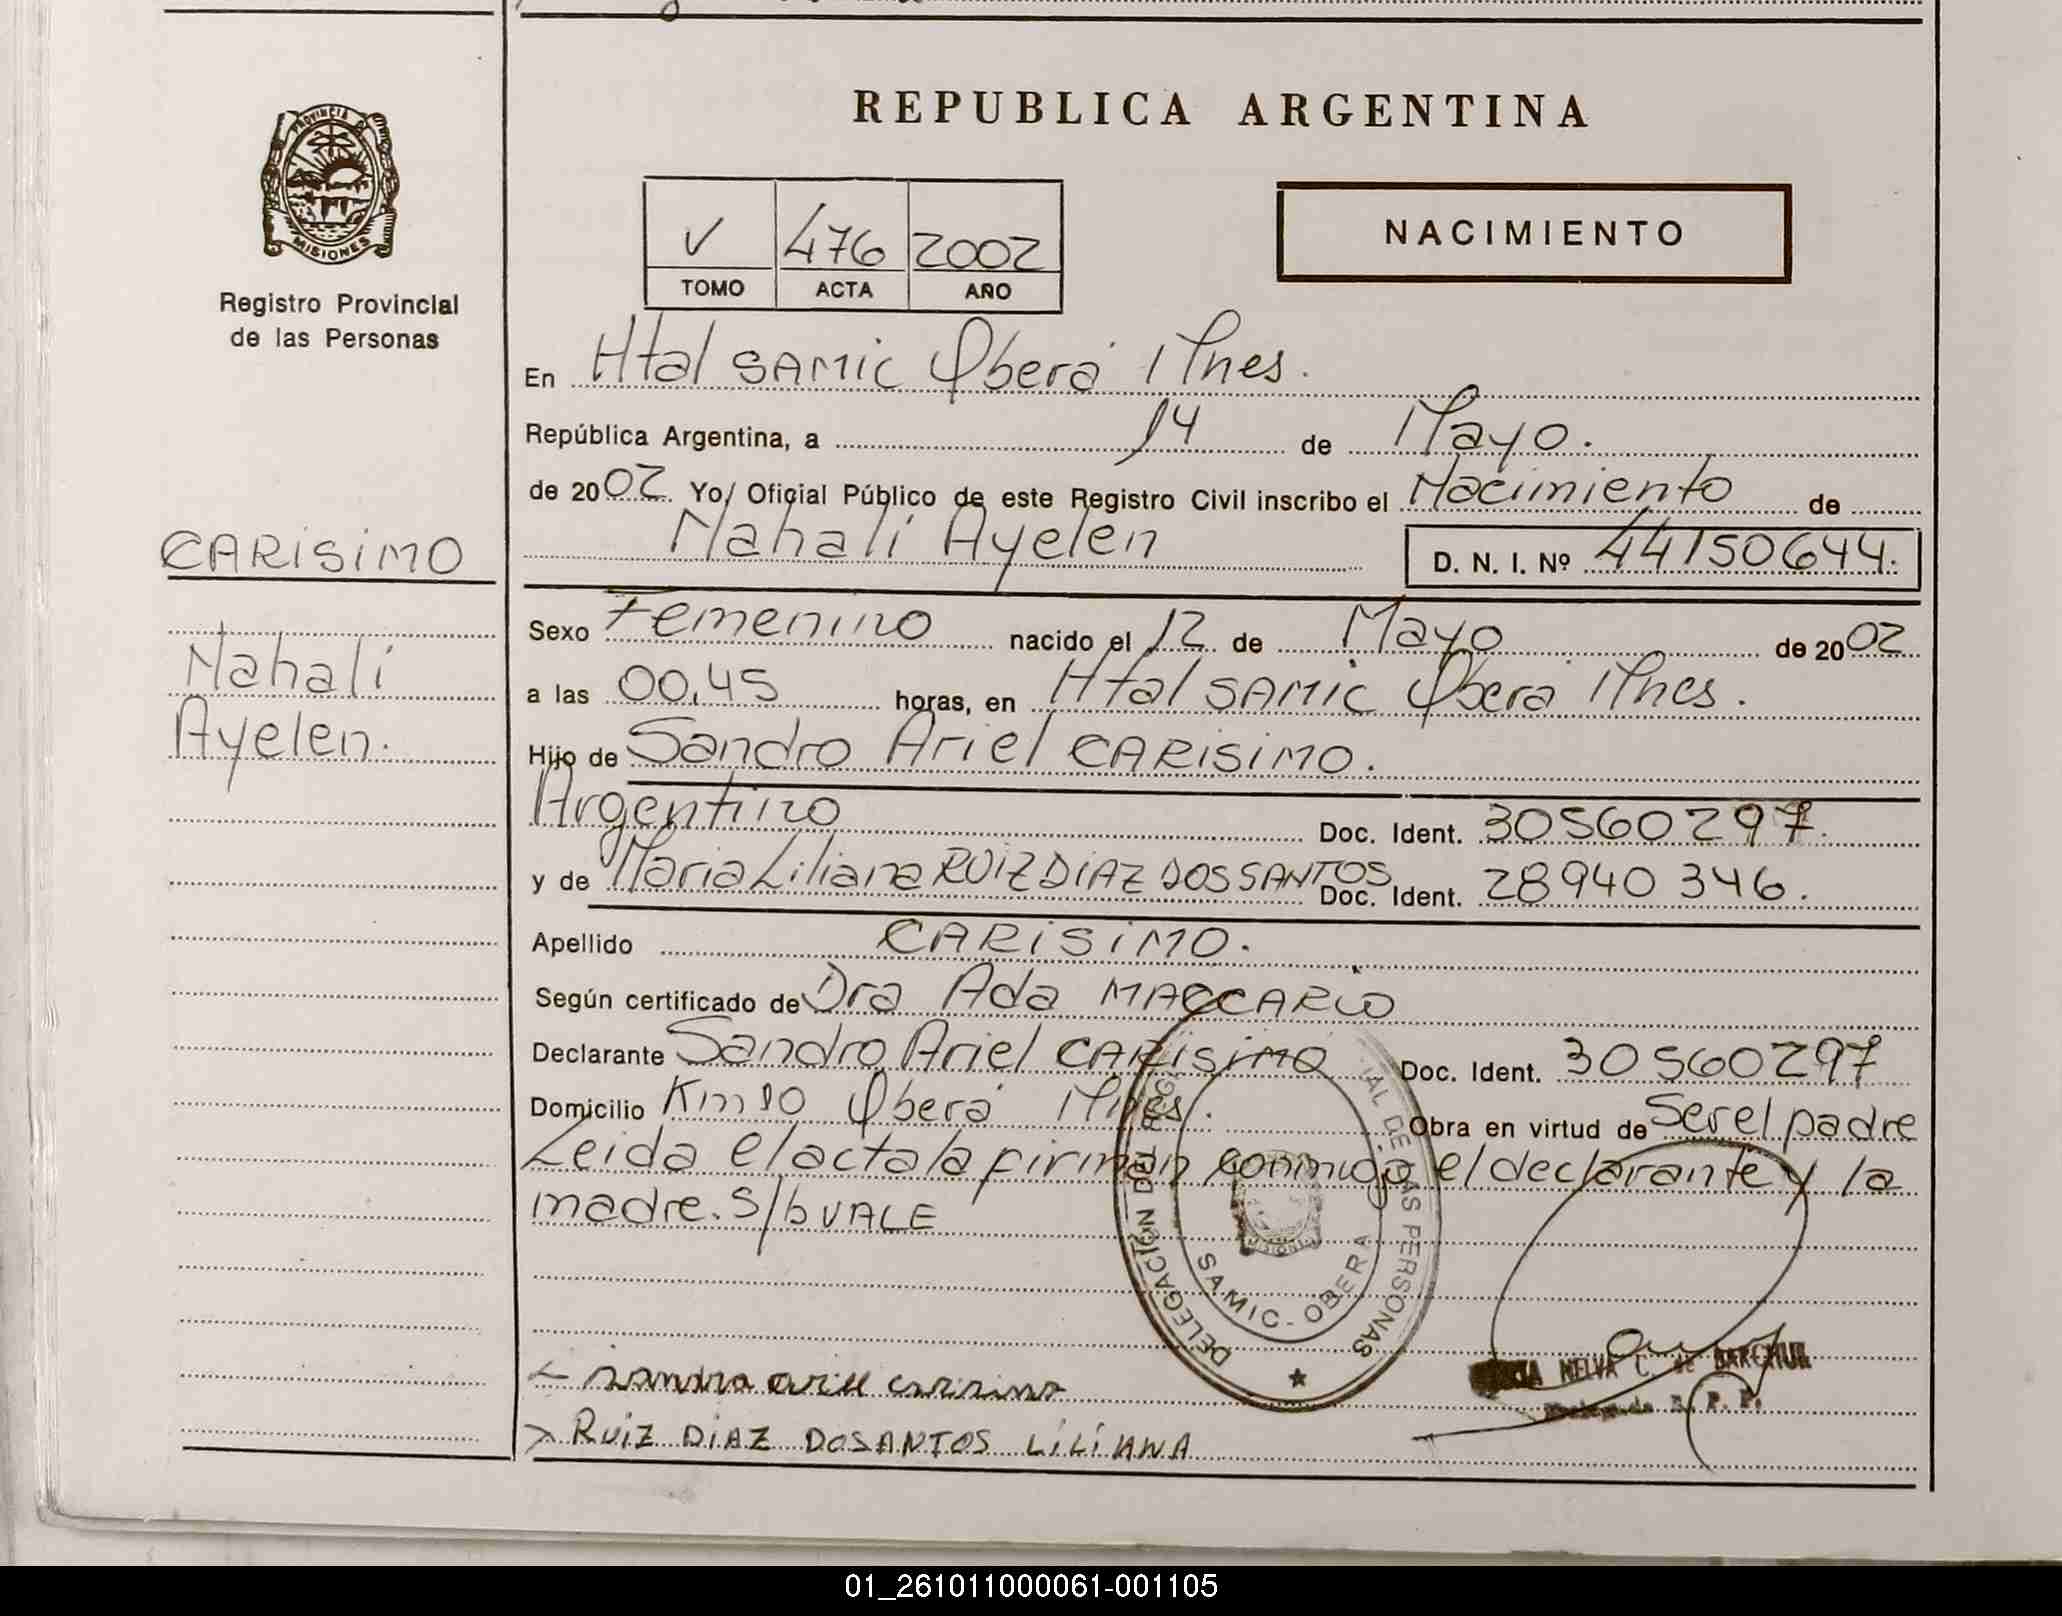 REPUBLICA ARGENTINA
PROVINCIA DE
MISIONES
Registro Provincial
de las Personas
V 476 2002
TOMO ACTA AÑO
NACIMIENTO
En Htal SAMIC Oberá Mnes.
República Argentina, a 14 de Mayo.
de 2002 Yo, Oficial Público de este Registro Civil inscribo el Nacimiento de
Nahali Ayelen D. N. I. Nº 44150644.
CARISIMO
Nahali
Ayelen.
Sexo Femenino nacido el 12 de Mayo de 2002
a las 00,45 horas, en Htal SAMIC Oberá Mnes.
Hijo de Sandro Ariel CARISIMO.
Argentino Doc. Ident. 30560297.
y de Maria Liliana RUIZ DIAZ DOS SANTOS Doc. Ident. 28940346.
Apellido CARISIMO.
Según certificado de Dra Ada MACCARIO
Declarante Sandro Ariel CARISIMO Doc. Ident. 30560297
Domicilio Km 10 Oberá Mnes. Obra en virtud de Ser el padre
Leida el acta la firman conmigo el declarante y la
madre. S/b VALE
DELEGACIÓN DEL REG IAL DE LAS PERSONAS
MISIONES
SAMIC - OBERA
NELVA C. de
R. P. P.
sandro ariel carisimo
RUIZ DIAZ DOSANTOS LILIANA
01_261011000061-001105